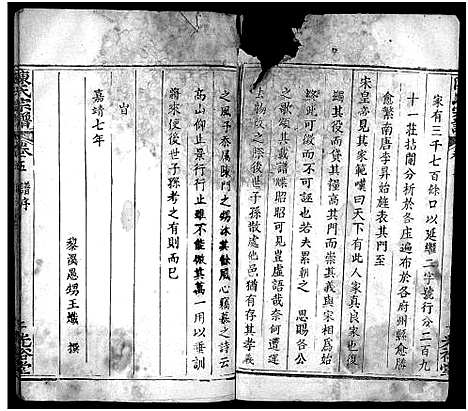 家有三千七百餘口以延繼二字號行分二百九
十一莊拈鬮分析於各庄遍布於各府州縣愈勝
愈繁南唐李昇旌表其門至
宋皇帝見其家範嘆曰天下有此人家真良家也復
蠲其役而貸其糧高其門而崇其義與宋相為始
終其可徵而不可誣也若夫累朝 恩賜各公
之歌頌其載諜昭昭可見豈虛語哉奈何遭運
物故之際後世子孫散處他邑猶有存其孝義
之風予忝屬陳門之甥沐其餘風心竊藝之詩云
高山仰止景行行止雖不能效其萬一用以垂訓
將來俾後世子孫考之有則而已
旹
嘉靖七年
黎溪愚甥王熾 撰
陳氏宗譜 卷五 譜序